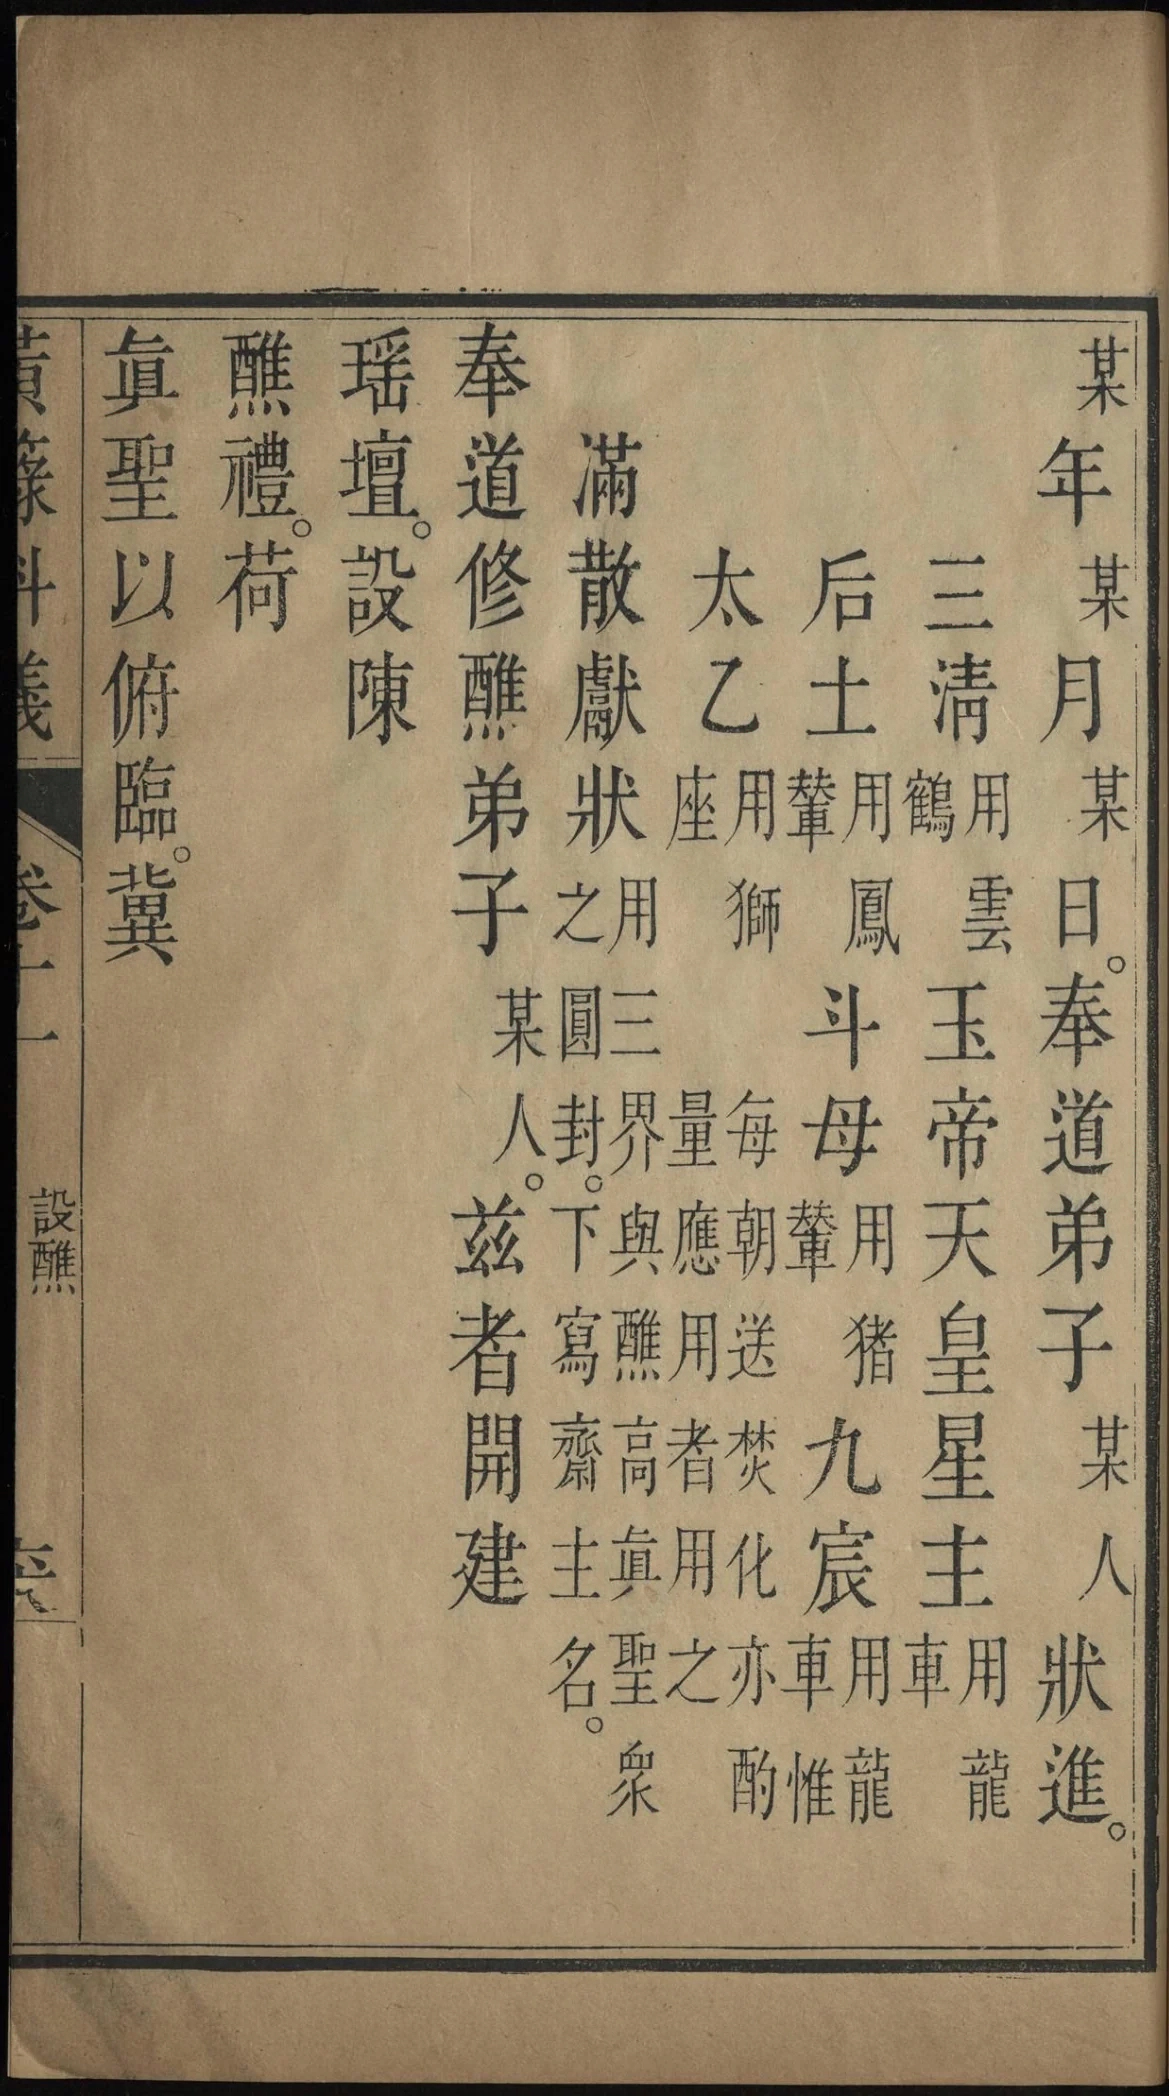 某年某月某日。奉道弟子某人狀進。
三清用雲鶴玉帝天皇星主用龍車
后土用鳳輦斗母用猪輦九宸用龍車惟
太乙用獅座每朝送焚化亦酌量應用者用之
滿散獻狀用三界與醮高眞聖衆之圓封。下寫齋主名。
奉道修醮弟子某人。兹者開建
瑶壇。設陳
醮禮。荷
眞聖以俯臨。冀
黃籙科儀 卷十一 設醮